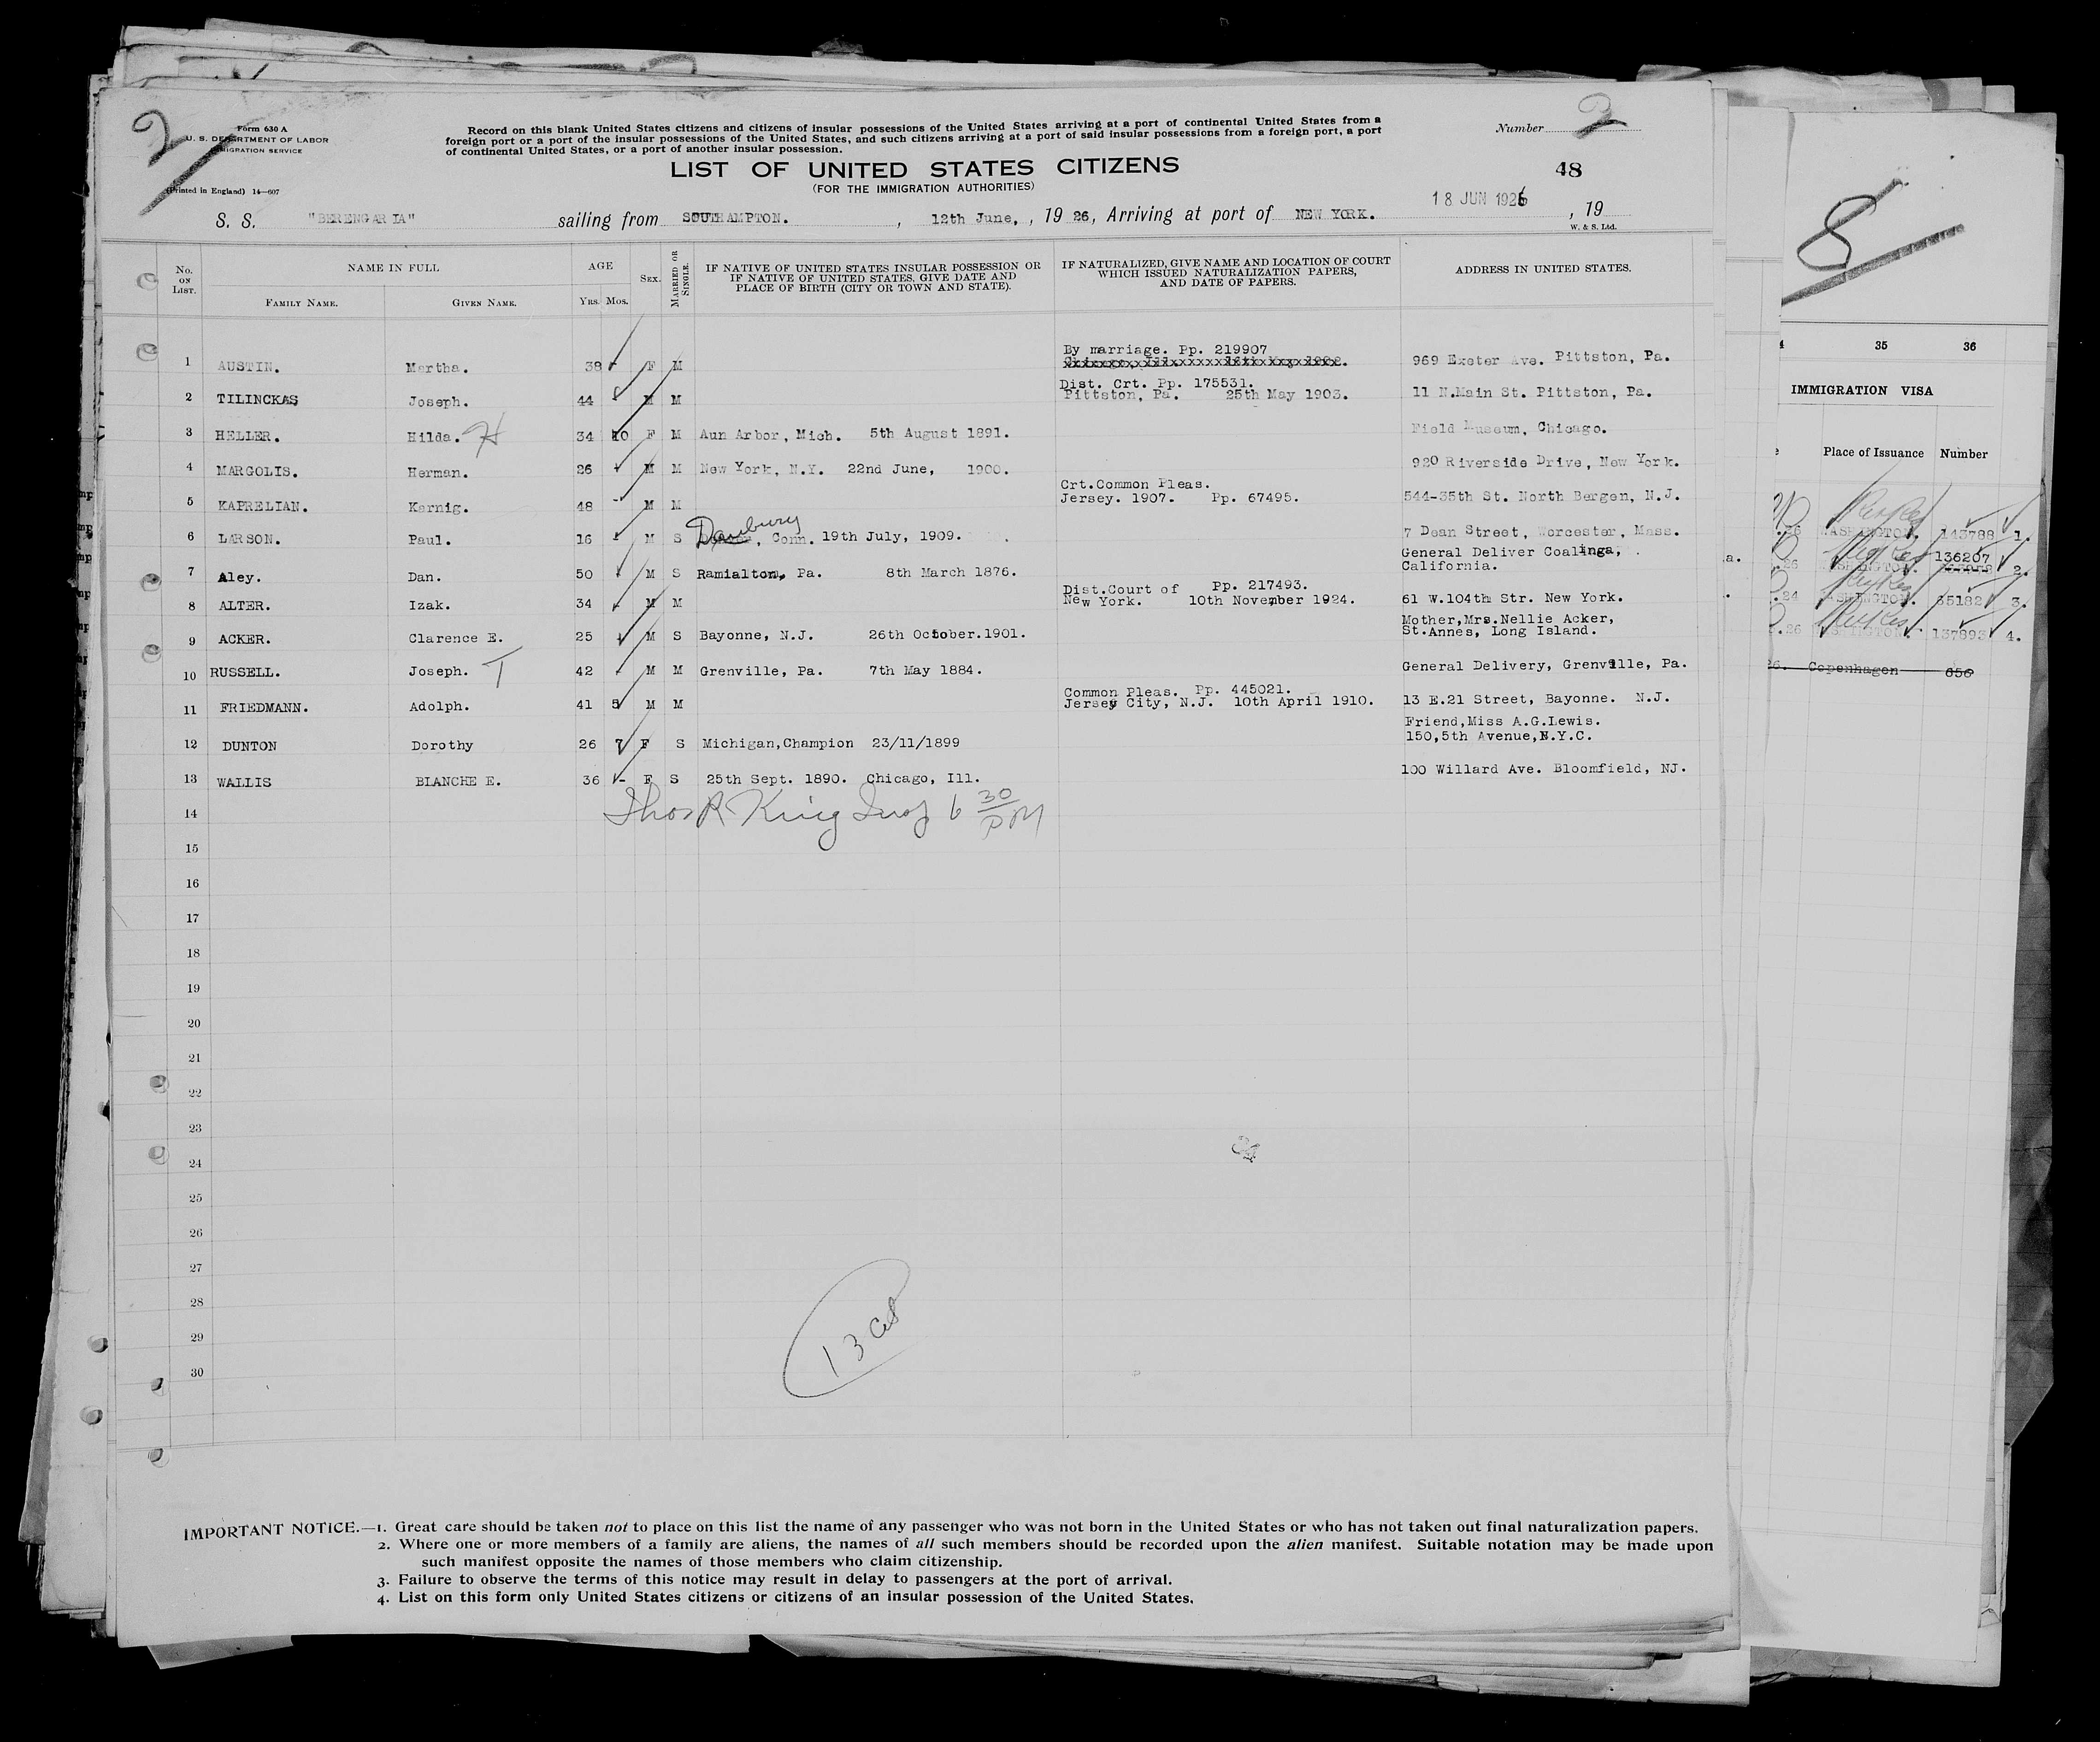 2
Form 630 A
U. S. DEPARTMENT OF LABOR
IMMIGRATION SERVICE
(Printed in England) 14—607
Record on this blank United States citizens and citizens of insular possessions of the United States arriving at a port of continental United States from a
foreign port or a port of the insular possessions of the United States, and such citizens arriving at a port of said insular possessions from a foreign port, a port
of continental United States, or a port of another insular possession.
Number 2
LIST OF UNITED STATES CITIZENS
(FOR THE IMMIGRATION AUTHORITIES)
48
S. S. "BERENGARIA" sailing from SOUTHAMPTON. , 12th June, , 1926, Arriving at port of NEW YORK. 18 JUN 1926 , 19
W. & S. Ltd.
No. ON LIST. NAME IN FULL AGE SEX. MARRIED OR SINGLE. IF NATIVE OF UNITED STATES INSULAR POSSESSION OR IF NATIVE OF UNITED STATES, GIVE DATE AND PLACE OF BIRTH (CITY OR TOWN AND STATE). IF NATURALIZED, GIVE NAME AND LOCATION OF COURT WHICH ISSUED NATURALIZATION PAPERS, AND DATE OF PAPERS. ADDRESS IN UNITED STATES.
FAMILY NAME. GIVEN NAME. YRS. MOS.
By marriage. Pp. 219907
1 AUSTIN. Martha. 38 F M 969 Exeter Ave. Pittston, Pa.
Dist. Crt. Pp. 175531.
2 TILINCKAS Joseph. 44 - M M Pittston, Pa. 25th May 1903. 11 N.Main St. Pittston, Pa.
3 HELLER. Hilda. H 34 10 F M Aun Arbor, Mich. 5th August 1891. Field Museum, Chicago.
4 MARGOLIS. Herman. 26 - M M New York, N.Y. 22nd June, 1900. 920 Riverside Drive, New York.
Crt.Common Pleas.
5 KAPRELIAN. Karnig. 48 - M M Jersey. 1907. Pp. 67495. 544-35th St. North Bergen, N.J.
Danbury
6 LARSON. Paul. 16 - M S , Conn. 19th July, 1909. 7 Dean Street, Worcester, Mass.
General Deliver Coalinga,
7 Aley. Dan. 50 - M S Ramialton, Pa. 8th March 1876. California.
Dist.Court of Pp. 217493.
8 ALTER. Izak. 34 - M M New York. 10th November 1924. 61 W.104th Str. New York.
Mother,Mrs.Nellie Acker,
9 ACKER. Clarence E. 25 - M S Bayonne, N.J. 26th October.1901. St.Annes, Long Island.
10 RUSSELL. Joseph. T 42 - M M Grenville, Pa. 7th May 1884. General Delivery, Grenville, Pa.
Common Pleas. Pp. 445021.
11 FRIEDMANN. Adolph. 41 5 M M Jersey City, N.J. 10th April 1910. 13 E.21 Street, Bayonne. N.J.
Friend,Miss A.G.Lewis.
12 DUNTON Dorothy 26 7 F S Michigan,Champion 23/11/1899 150,5th Avenue,N.Y.C.
13 WALLIS BLANCHE E. 36 - F S 25th Sept. 1890. Chicago, Ill. 100 Willard Ave. Bloomfield, NJ.
14 Thos R King Insp 6 30 PM
15
16
17
18
19
20
21
22
23
24
25
26
27
28
29
30
13
IMPORTANT NOTICE.—1. Great care should be taken not to place on this list the name of any passenger who was not born in the United States or who has not taken out final naturalization papers.
2. Where one or more members of a family are aliens, the names of all such members should be recorded upon the alien manifest. Suitable notation may be made upon
such manifest opposite the names of those members who claim citizenship.
3. Failure to observe the terms of this notice may result in delay to passengers at the port of arrival.
4. List on this form only United States citizens or citizens of an insular possession of the United States.
8
35 36
IMMIGRATION VISA
Place of Issuance Number
26 WASHINGTON. 143788 1.
136207
26 WASHINGTON. 2.
24 WASHINGTON. 85182 3.
26 WASHINGTON. 137893 4.
26. Copenhagen 656